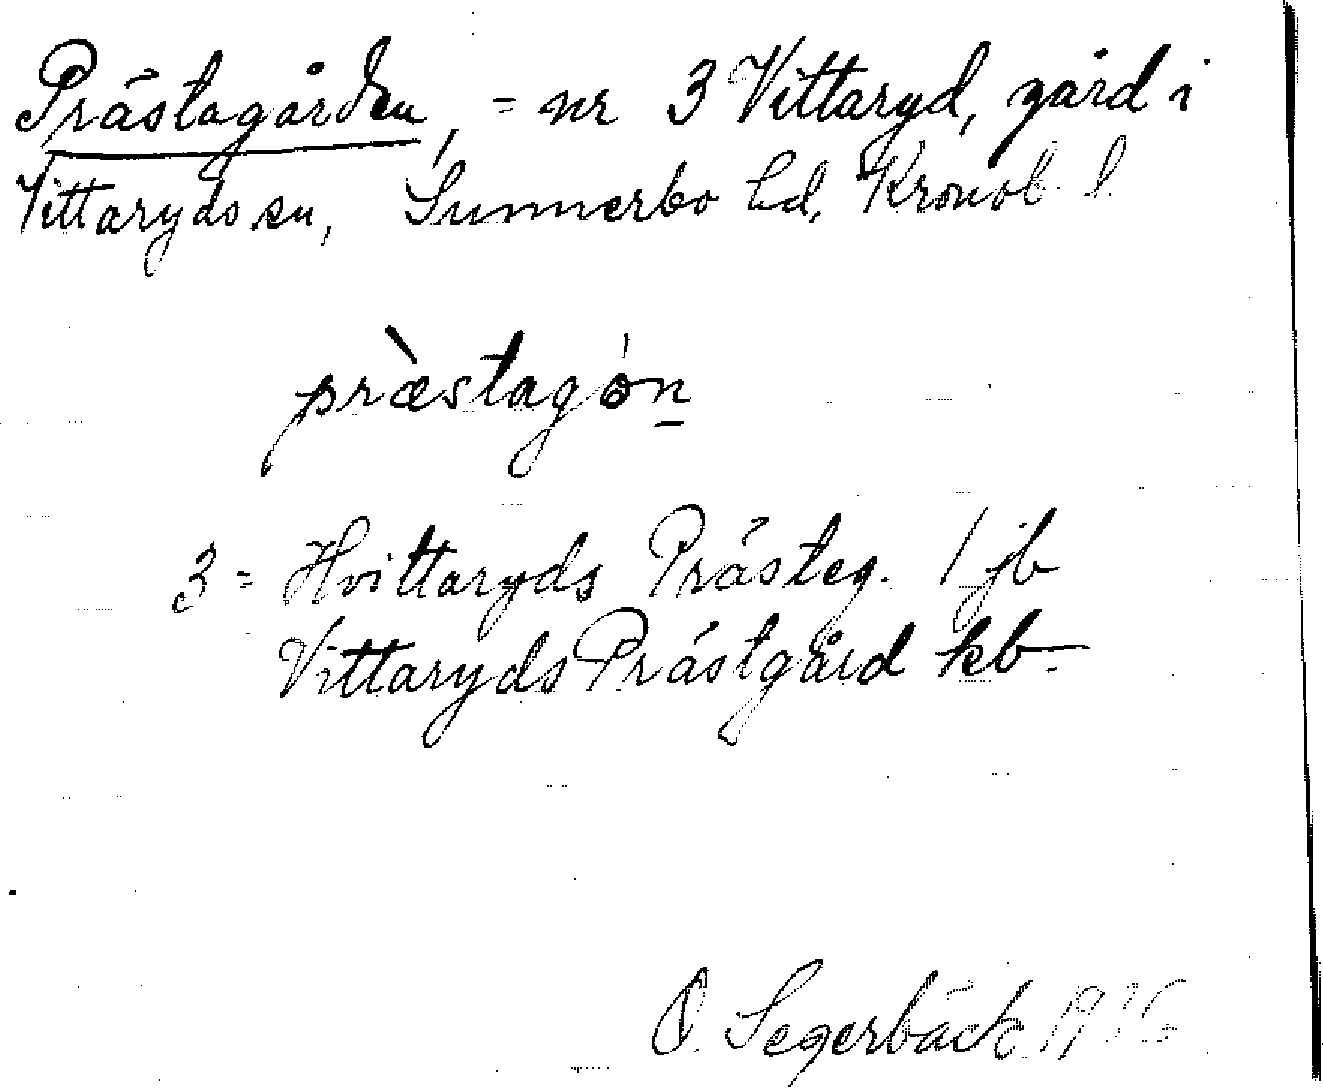 Prästagården, = nr 3 Vittaryd, gård i
Vittaryds sn, Sunnerbo hd, Kronob. l.
præ̀stagón
3 = Hvittaryds Prästeg. 1 jb
Vittaryds Prästgård kb.
O. Segerbäck 1936